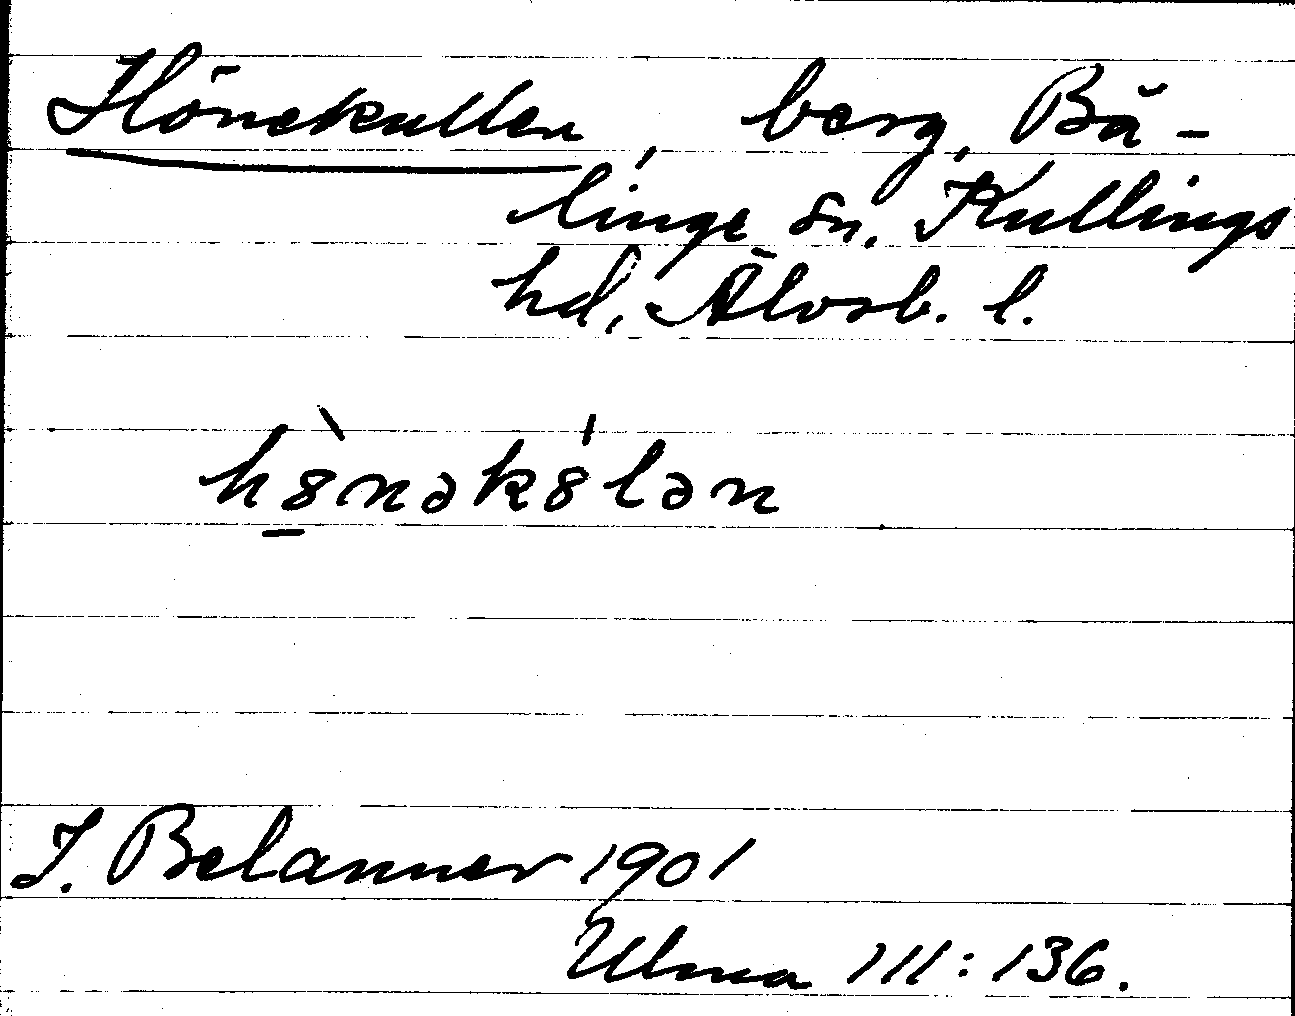 Hönekullen, berg, Bä-
linge sn, Kullings
hd, Älvsb. l.
hȣ̀nəkȣ́lən
J. Belanner 1901
Ulma 111:136.